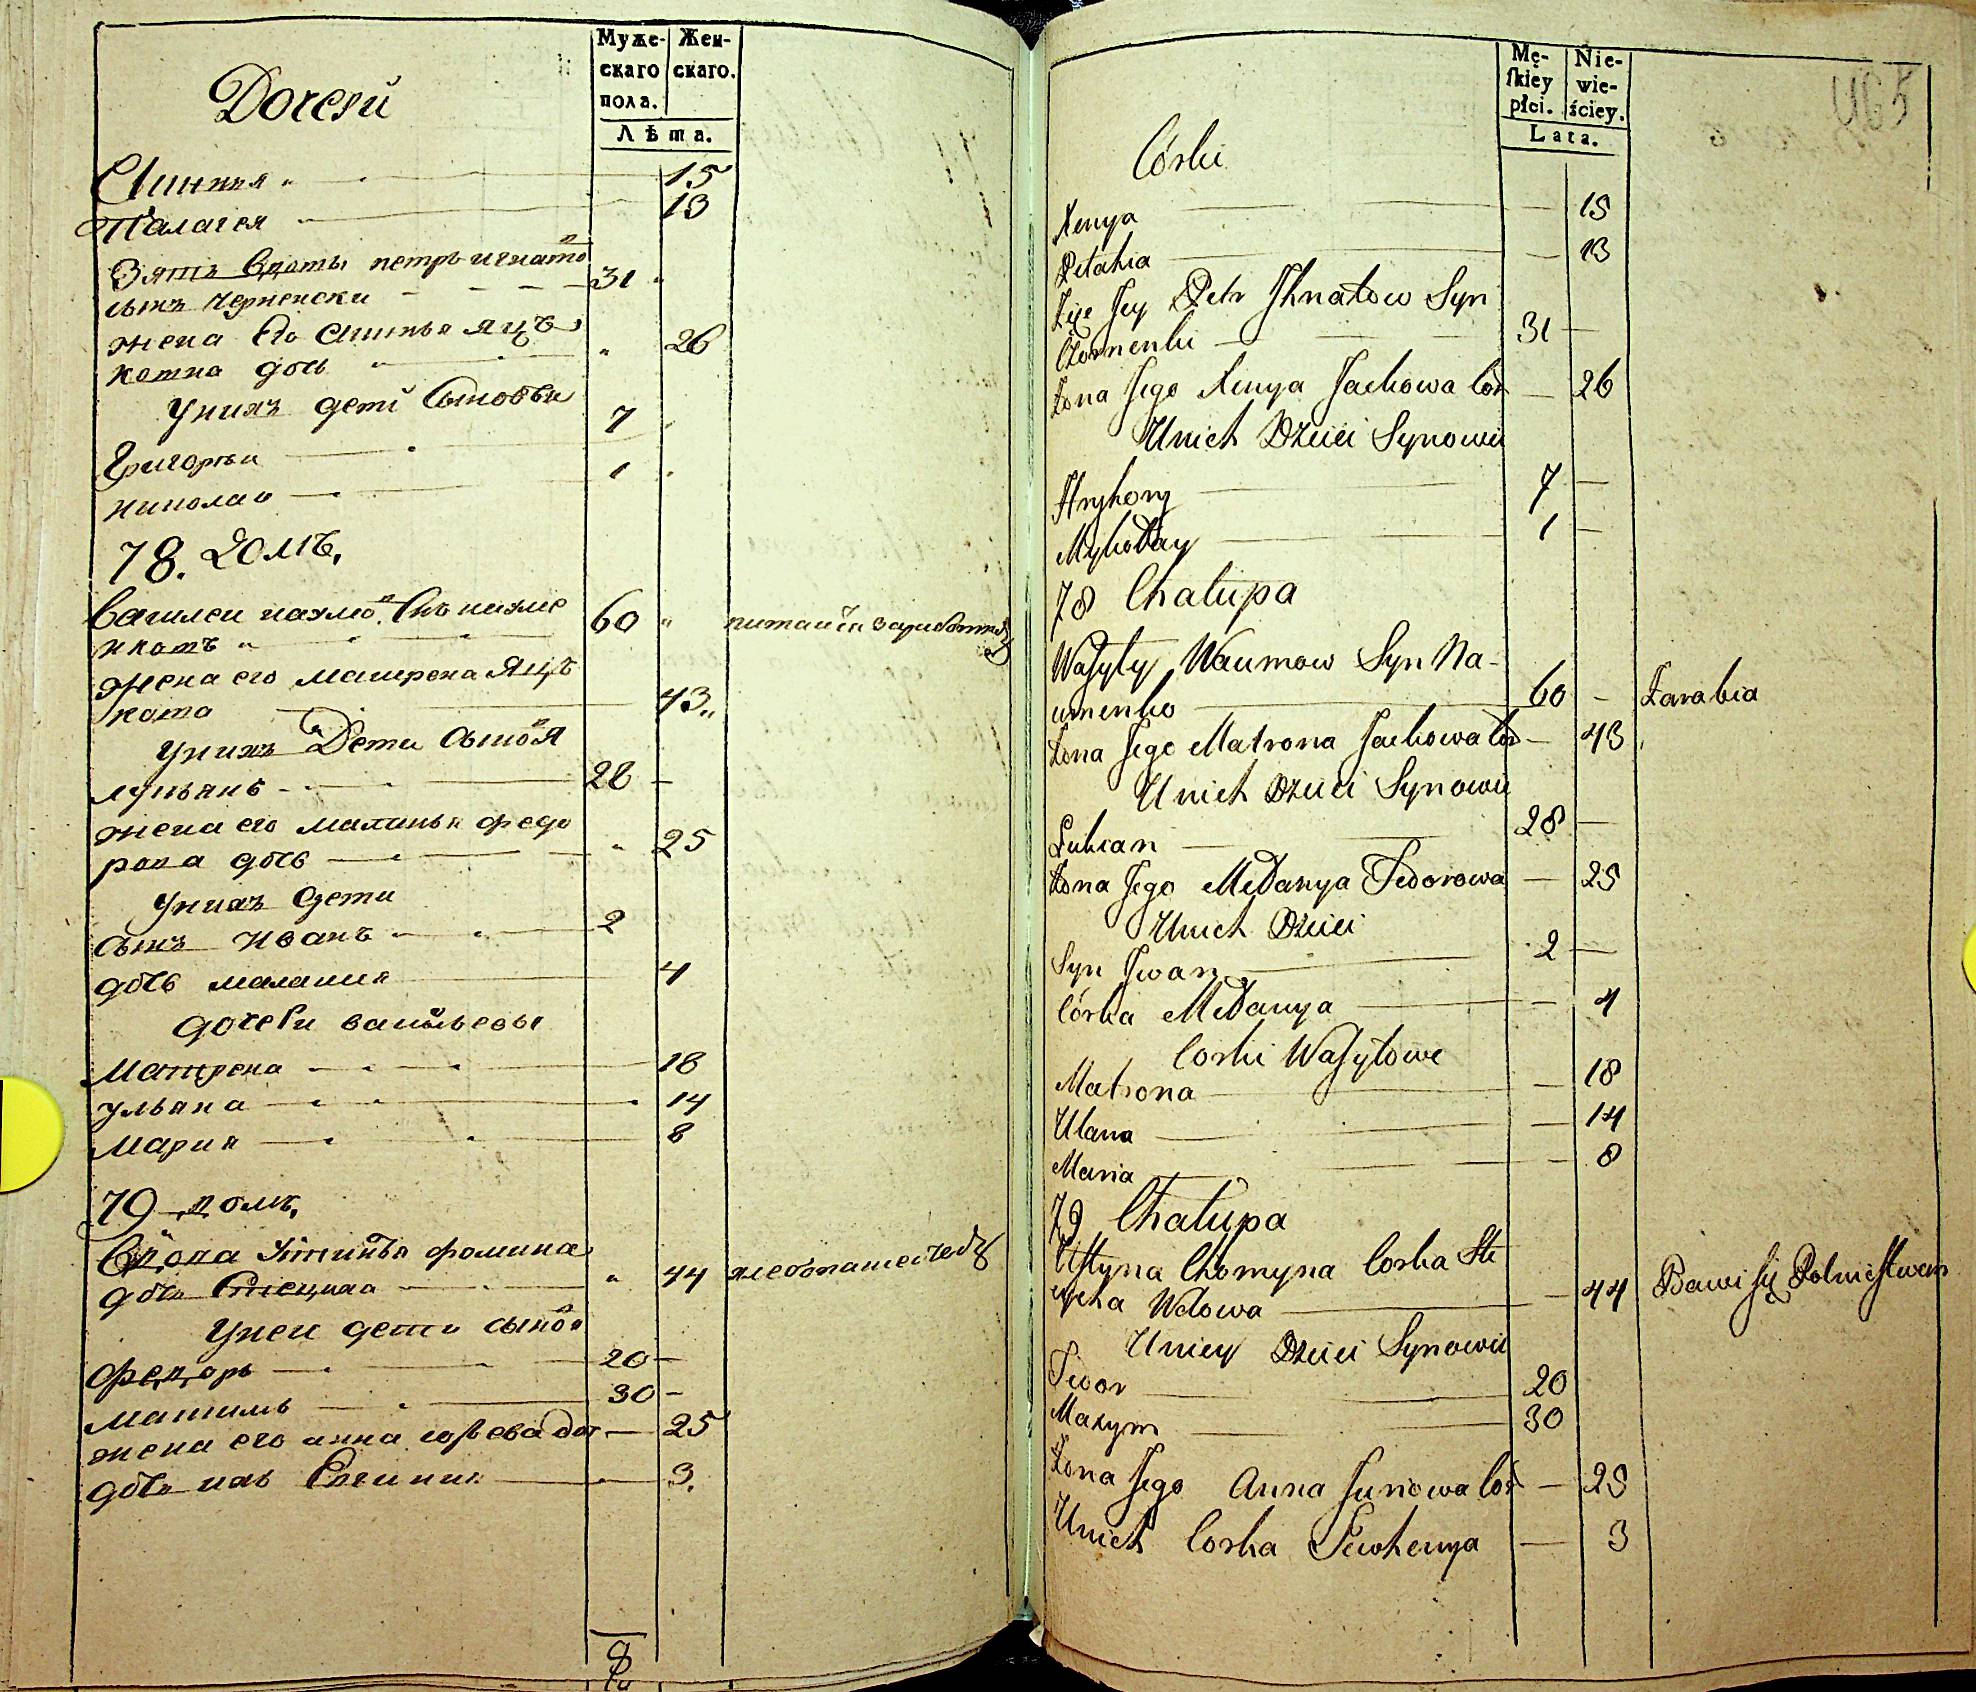 Муже-
скаго
пола.
Жен-
скаго.
Лѣта.
Дочери
15
Палагея 13
Зять вдовы петръ игнатов
сынъ Черненски 31
жена его яцъ
кова дочь 26
У нихъ дети Сыновьи
Григорьи 7
николаи 1
78. Домъ.
Василеи наумов. Снъ науме
нкотъ 60
жена его матрена Яцъ
кова 43
У нихъ Дети Сыновя
лукьянъ 28
жена его маланья федо
рова дочь 25
У нихъ дети
сынъ иванъ 2
дочь малания 4
дочери васильевы
матрена 18
ульяна 14
Мария 8
79 домъ.
Вдова Устинья фомина
дочь 44
У неи дети сынов
федоръ 20
максимъ 30
жена его анна доч 25
дочь ихъ 3.
Mę-
skiey
płci.
Nie-
wie-
ściey.
Lata.
465
Córki
Xenya 15
Pelahia 13
Zięć Jey Petr Ihnatow Syn
Czornenki 31
Żona Jego Xenya Jackowa Cór 26
U nich Dzieci Synowie
Hryhory 7
Mykołay 1
78 Chałupa
Wasyly Naumow Syn Na-
umenko 60 Zarabia
Żona Jego Matrona Jackowa Cór 43
U nich Dzieci Synowie
Lukian 28
Żona Jego Mełanya Fedorowa 25
U nich Dzieci
Syn Iwan 2
Córka Mełanya 4
Corki Wasylowe
Matrona 18
Ulana 14
Maria 8
79 Chałupa
Ustyna Chomyna Corka Ste
cycha Wdowa 44 Bawi się Rolnictwem
U niey Dzieci Synowie
Fedor 20
Maxym 30
Żona Jego Anna Cór 25
U nich Corka Jewhenya 3